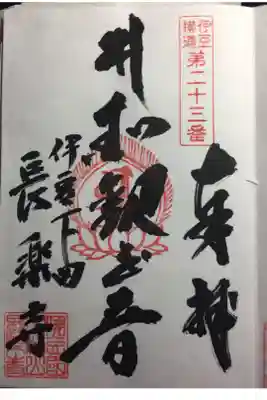 伊豆
横道
第二十三番
奉拝
和観世音
伊豆下田
長楽寺